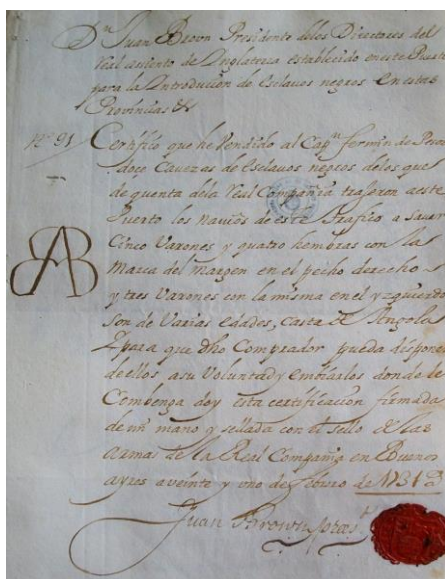 Dn Juan Brown Presidente delos Directores del
Real assiento de Inglaterra establecido en este Puerto
para la Introducion de Esclavos negros En estas
Provincias &
No 91 Certifico que he Vendido al Capn fermin de
doce Cavezas de Esclavos negros delos que
de quenta dela Real Compañia trajeron aeste
Puerto los navios de este trafico a Saver
Cinco Varones y quatro hembras con la
Marca del Margen en el pecho derecho
y tres Varones con la misma en el yzquierdo
Son de Varias edades, Casta de Angola
Ypara que dho Comprador pueda disponer
de ellos asu Voluntad y embiarlos donde le
Combenga doy esta certificacion firmada
de mi mano y sellada con el sello de las
armas de la Real Compañia en Buenos
ayres aveinte y uno de febrero de 1731 as
Juan Brown